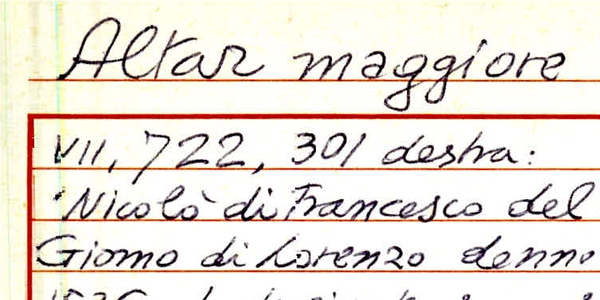 Altar maggiore
VII, 722, 301 destra:
"Nicolò di Francesco del
Giomo di Lorenzo denno